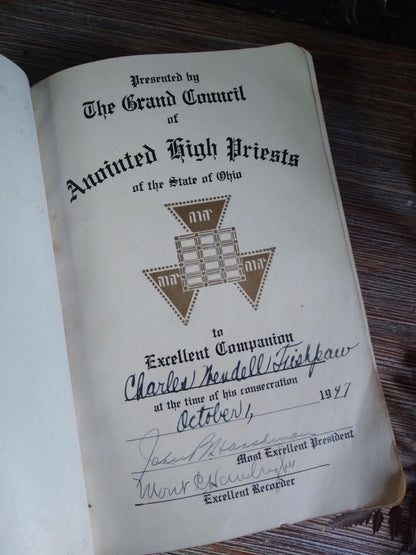 Presented by
The Grand Council
of
Anointed High Priests
of the State of Ohio
יהוה
יהוה יהוה
to
Excellent Companion
Charles Wendell Frishpaw
at the time of his consecration
October 1, 1947
John
Most Excellent President
Excellent Recorder